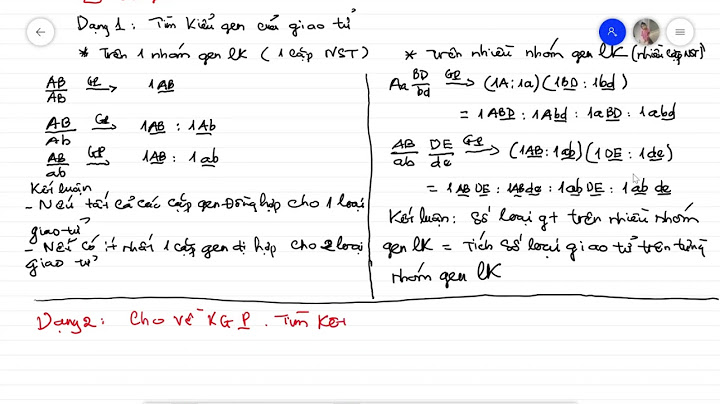 Dạng 1: Tìm Kiểu gen của giao tử
* Trên 1 nhóm gen lK (1 cặp NST)
AB/AB GP→ 1AB
AB/Ab GP→ 1AB : 1Ab
AB/ab GP→ 1AB : 1ab
Kết luận
- Nếu tất cả các cặp gen đồng hợp cho 1 loại
giao tử
- Nếu có ít nhất 1 cặp gen dị hợp cho 2 loại
giao tử
* Trên nhiều nhóm gen lK (nhiều cặp NST)
Aa BD/bd GP→ (1A:1a)(1BD:1bd)
= 1ABD : 1Abd : 1aBD : 1abd
AB/ab DE/de GP→ (1AB:1ab)(1DE:1de)
= 1ABDE : 1ABde : 1abDE : 1abde
Kết luận: Số loại gt trên nhiều nhóm
gen lK = Tích số loại giao tử trên từng
nhóm gen lK
Dạng 2: Cho về KG P. Tìm Kết